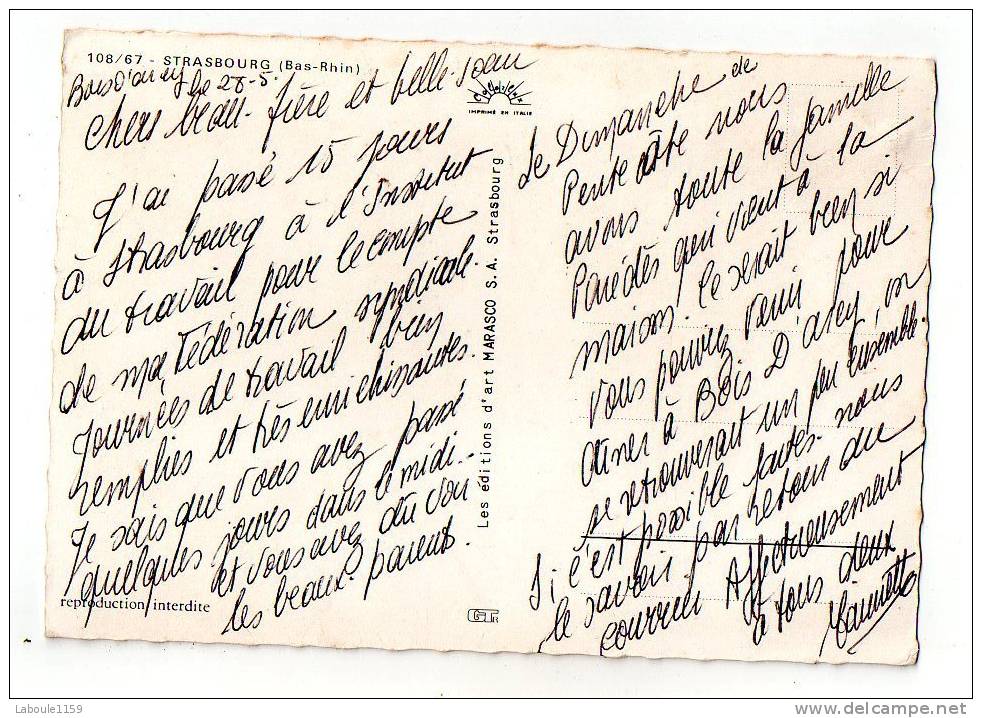 108/67 - STRASBOURG (Bas-Rhin)
Bois D'arcy le 28-5
Chers beau-frère et belle-soeur
J'ai passé 15 jours
à Strasbourg à l'Institut
du travail pour le compte
de ma Fédération syndicale.
Journées de travail bien
remplies et très enrichissantes.
Je sais que vous avez passé
quelques jours dans le midi..
et vous avez du voir
les beaux-parents.
reproduction interdite
IMPRIMÉ EN ITALIE
Les éditions d'art MARASCO S. A. Strasbourg
Le Dimanche de
Pentecôte nous
avons toute la famille
Parédès qui vient à la
maison. Ce serait bien si
vous pouviez venir pour
diner à Bois D'arcy, on
se retrouverait un peu ensemble.
Si c'est possible faites-nous
le savoir par retour du
courrier. Affectueusement
à tous deux
Laboule1159
www.delcampe.net